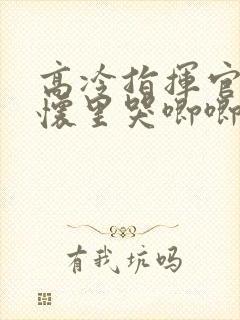 高冷指揮官
懷里哭唧唧
有我坑吗